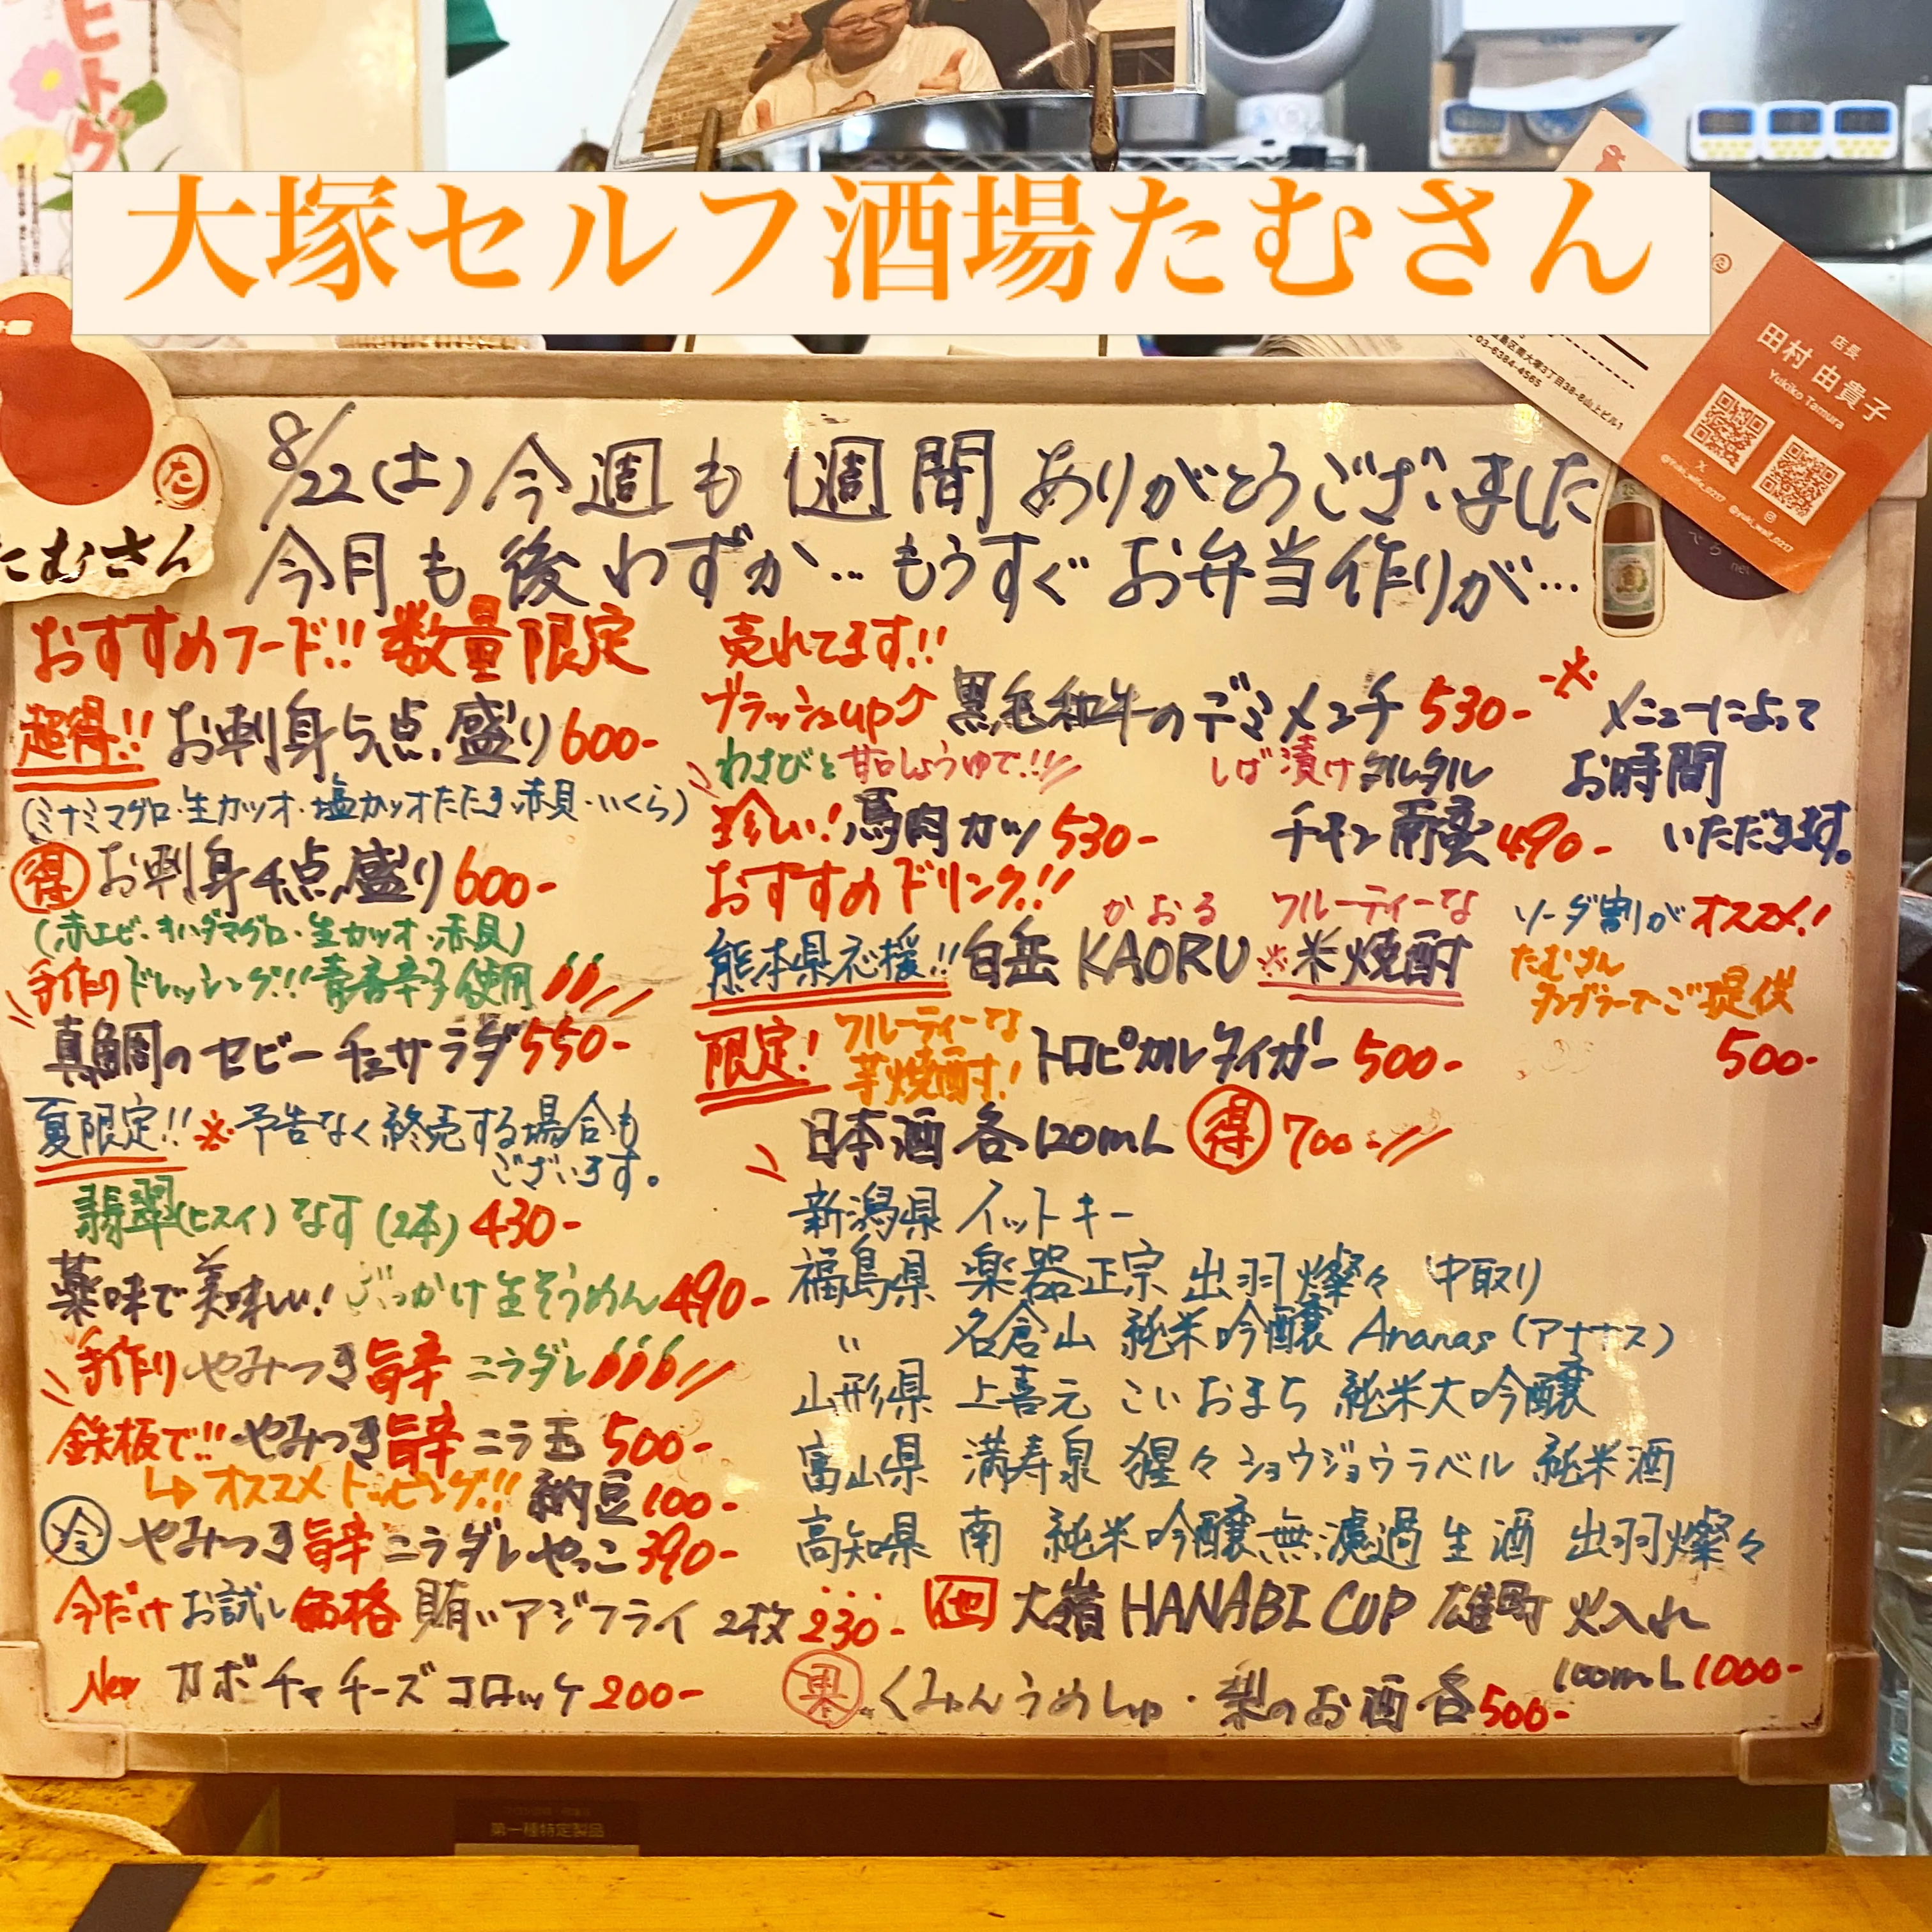 大塚セルフ酒場たむさん
店長
田村 由貴子
Yukiko Tamura
03-6384-4565
たむさん
8/22(土)今週も1週間ありがとうございました
今月も後わずか…もうすぐお弁当作りが…
おすすめフード!!数量限定
超得!!お刺身5点盛り600-
(ミナミマグロ・生カツオ・塩カツオたたき・赤貝・いくら)
得 お刺身4点盛り600-
(赤エビ・キハダマグロ・生カツオ・赤貝)
手作りドレッシング!!青唐辛子使用
真鯛のセビーチェサラダ550-
夏限定!!※予告なく終売する場合も
ございます。
翡翠(ヒスイ)なす(2本)430-
薬味で美味しい!ぶっかけ生そうめん490-
手作りやみつき旨辛ニラダレ
鉄板で!!やみつき旨辛ニラ玉500-
↳オススメトッピング!!納豆100-
冷 やみつき旨辛ニラダレやっこ390-
今だけお試し価格 賄いアジフライ2枚230-
New カボチャチーズコロッケ200-
売れてます!!
ブラッシュup⤴黒毛和牛のデミメンチ530-
わさびと甘口しょうゆで!!
珍しい!馬肉カツ530-
しば漬けタルタル
チキン南蛮490-
※メニューによって
お時間
いただきます。
おすすめドリンク!!
かおる フルーティーな
熊本県応援!!白岳KAORU※米焼酎
ソーダ割がオススメ!
たむさん
タンブラーでご提供
500-
限定!フルーティーな
芋焼酎!トロピカルタイガー500-
日本酒各120mL得700-
新潟県 イットキー
福島県 楽器正宗 出羽燦々 中取り
〃 名倉山 純米吟醸 Ananas(アナナス)
山形県 上喜元 こいおまち 純米大吟醸
富山県 満寿泉 猩々ショウジョウラベル 純米酒
高知県 南 純米吟醸無濾過生酒 出羽燦々
大嶺HANABI CUP 雄町 火入れ
100mL1000-
果 くみゅんうめしゅ・梨のお酒各500-
第一種特定製品